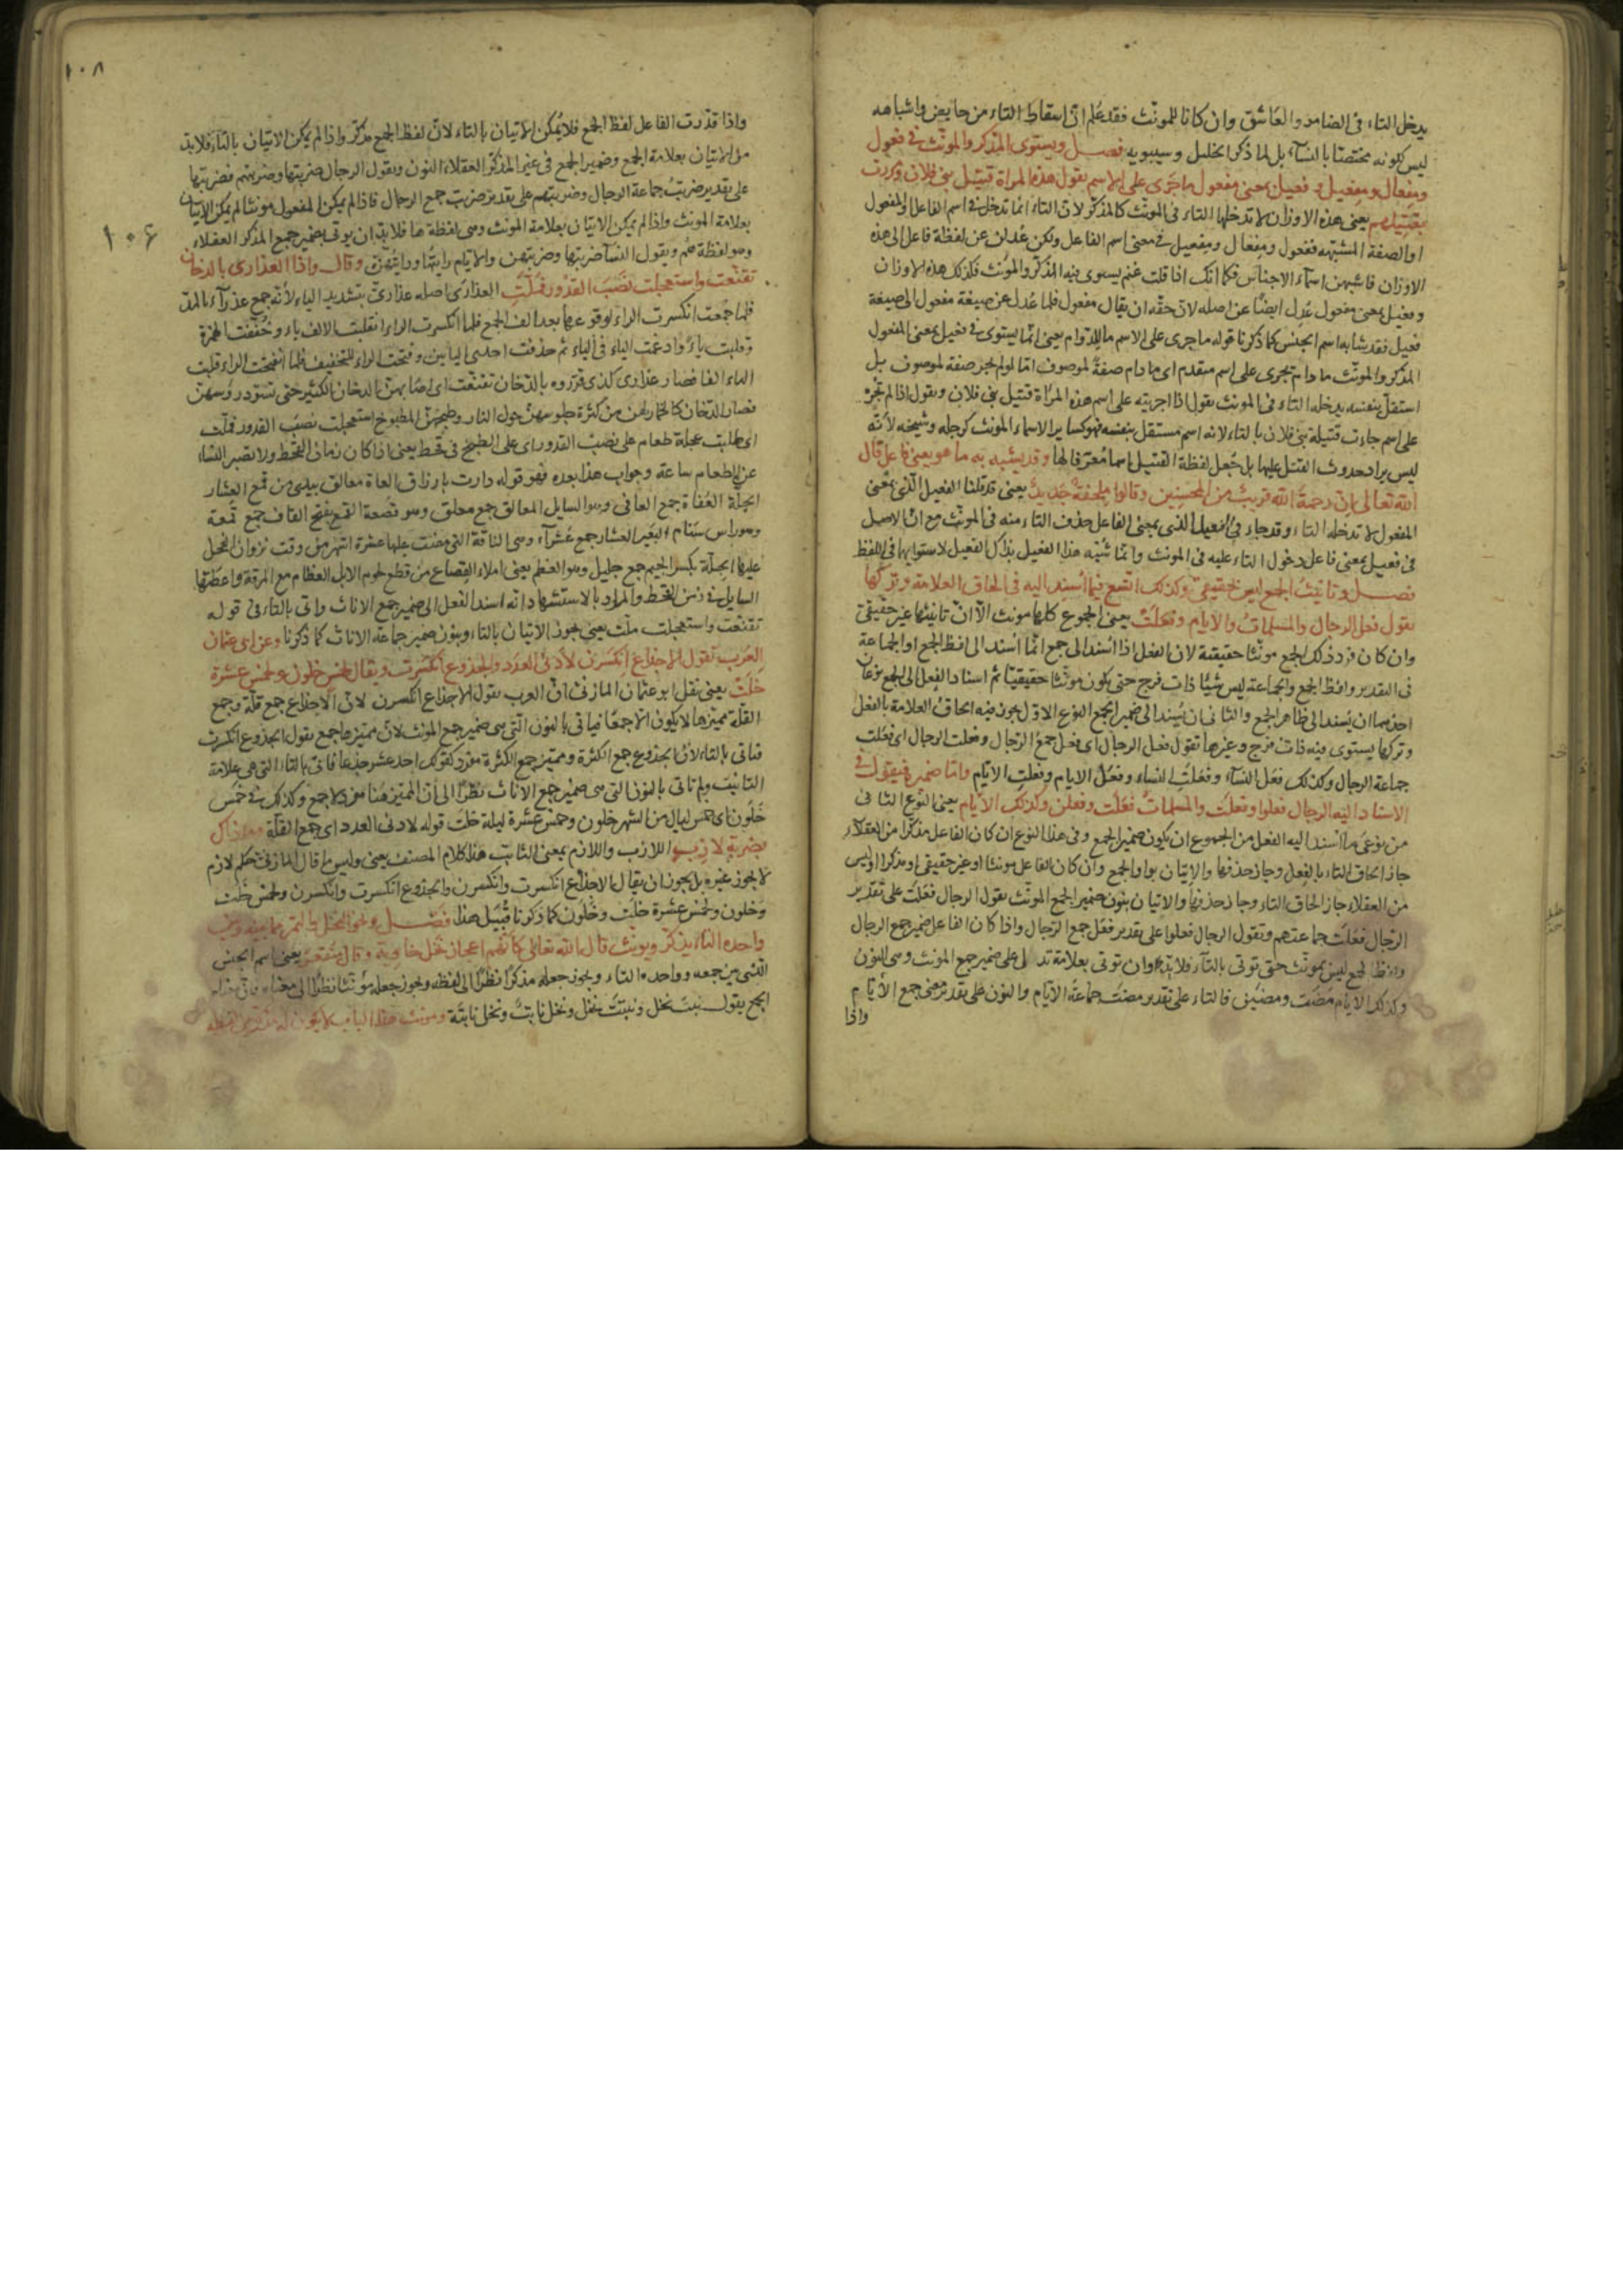 يدخل التاء في الضامر والعاشق وان كانا للمونث فقد علم ان اسقاط التاء من حايض واشباهه
ليس لكونه مختصا بالنسآء بل لما ذكر الخليل وسيبويه فصل ويستوي المذكر والمونث في فعول
ومفعال ومفعيل وفعيل بمعنى مفعول ما جرى على الاسم تقول هذه المراة قتيل بني فلان ومررت
بقتيلهم يعني هذه الاوزان لا تدخلها التاء في المونث كالمذكر لان التاء انما تدخل في اسم الفاعل والمفعول
او الصفة المشبهة ففعول ومفعال ومفعيل في معنى اسم الفاعل ولكن عدلن عن لفظة فاعل الى هذه
الاوزان فاشبهن اسمآء الاجناس فكما انك اذا قلت غنم يستوي فيه المذكر والمونث فكذلك هذه الاوزان
وفعيل بمعنى مفعول عدل ايضا عن اصله لان حقه ان يقال مفعول فلما عدل عن صيغة مفعول الى صيغة
فعيل فقد شابه اسم الجنس كما ذكرنا قوله ما جرى على الاسم ما للدوام يعني انما يستوي في فعيل بمعنى المفعول
المذكر والمونث ما دام يجرى على اسم متقدم اي ما دام صفة لموصوف اما لو لم يجر صفة لموصوف بل
استقل بنفسه يدخله التاء في المونث تقول اذا اجريته على اسم هذه المراة قتيل بني فلان وتقول اذا لم تجر
على اسم جاءت قتيلة بني فلان بالتاء لانه اسم مستقل بنفسه فهو كساير الاسماء المونث كرجلة وشيخة لانه
ليس يراد حدوث القتل عليها بل جعل لفظة القتيل اسما معرفا لها وقد يشبه به ما هو بمعنى فاعل قال
الله تعالى ان رحمة الله قريب من المحسنين وقالوا ملحفة جديد يعني قد قلنا الفعيل الذي بمعنى
المفعول لا تدخله التاء وقد جاء في الفعيل الذي بمعنى الفاعل حذف التاء منه في المونث مع ان الاصل
في فعيل بمعنى فاعل دخول التاء عليه في المونث وانما شبه هذا الفعيل بذاك الفعيل لاستوايهما في اللفظ
فصل وتانيث الجمع ليس بحقيقي وكذلك اتسع فيما اسند اليه في الحاق العلامة وتركها
تقول فعل الرجال والمسلمات والايام وفعلت يعني الجموع كلها مونث الا ان تانيثها غير حقيقي
وان كان فرد ذلك الجمع مونثا حقيقية لان الفعل اذا اسند الى جمع انما اسند الى لفظ الجمع او الجماعة
في التقدير ولفظ الجمع والجماعة ليس شيئا ذات فرج حتى يكون مونثا حقيقيا ثم اسناد الفعل الى الجمع نوعان
احدهما ان يسند الى ظاهر الجمع والثاني ان يسند الى ضمير الجمع النوع الاول يجوز فيه الحاق العلامة بالفعل
وتركها يستوي فيه ذات فرج وغيرها تقول فعل الرجال اي فعل جمع الرجال وفعلت الرجال اي فعلت
جماعة الرجال وكذلك فعل النسآء وفعلت النساء وفعل الايام وفعلت الايام واما ضمير فيقول في
الاسناد اليه الرجال فعلوا وفعلت والمسلمات فعلت وفعلن وكذلك الايام يعني النوع الثاني
من نوعي ما اسند اليه الفعل من الجموع ان يكون ضمير الجمع وفي هذا النوع ان كان الفاعل مذكرا من العقلآء
جاز الحاق التاء بالفعل وجاز حذفها والاتيان بواو الجمع وان كان الفاعل مونثا او غير حقيقي او مذكرا وليس
من العقلاء جاز الحاق التاء وجاز حذفها والاتيان بنون ضمير الجمع المونث تقول الرجال فعلت على تقدير
الرجال فعلت جماعتهم وتقول الرجال فعلوا على تقدير فعل جمع الرجال واذا كان الفاعل ضمير جمع الرجال
ولفظ الجمع ليس بمونث حتى توتى بالتآء فلا بد وان توتى بعلامة تدل على ضمير جمع المونث وهي النون
وكذلك الايام مضت ومضين فالتاء على تقدير مضت جماعة الايام والنون على تقدير مضى جمع الايام
واذا
١٠٨
واذا قدرت الفاعل لفظ الجمع فلا يمكن الاتيان بالتاء لان لفظ الجمع مذكر واذا لم يكن الاتيان بالتاء فلا بد
من الاتيان بعلامة الجمع وضمير الجمع في غير المذكر العقلاء النون وتقول الرجال ضربتها وضربتهم فضربتها
على تقدير ضربت جماعة الرجال وضربتهم على تقدير ضربت جمع الرجال فاذا لم يكن المفعول مونثا لم يمكن الاتيان
بعلامة المونث واذا لم يمكن الاتيان بعلامة المونث وهي لفظة ها فلا بد ان يوتى بضمير جمع المذكر العقلاء
١٠٦
وهو لفظة هم وتقول النسآء ضربتها وضربتهن والايام رايتها ورايتهن وقال واذا العذارى بالدخان
تقنعت واستعجلت نصب القدور فملت العذارى اصله عذاري بتشديد الياء لانه جمع عذرآء بالمد
فلما جمعت انكسرت الراء لوقوعها بعد الف الجمع فلما انكسرت الراء انقلبت الالف ياء وخففت الهمزة
وقلبت ياء وادغمت الياء في الياء ثم حذفت احدى اليايين وفتحت الراء للتخفيف فلما انفتحت الراء قلبت
الياء الفا فصار عذارى بالدخان تقنعت اي الدخان الكثير حتى تستر روسهن
فصار الدخان كالخمار لهن من كثرة جلوسهن حول النار وطبخهن المطبوخ استعجلت نصب القدور فملت
اي طلبت عجلة طعام على نصب القدور اي على الطبخ في قحط يعني اذا كان زمان القحط ولا تصبر النساء
عن الطعام ساعة وجواب هذا بعده فهو قوله دارت بارزاق العفاة مغالق بيدي من قمع العشار
الجلة العفاة جمع العافي وهو السايل المغالق جمع مغلق وهو قصعة القمع بفتح القاف جمع قمعة
وهو راس سنام البعير العشار جمع عشرآء وهي الناقة التي مضت عليها عشرة اشهر من وقت نزوان الفحل
عليها الجلة بكسر الجيم جمع جليل وهو العظيم يعني املاء القصاع من قطع لحوم الابل العظام مع المرقة واعطيتها
السايل في زمن القحط والمراد بالاستشهاد انه اسند الفعل الى ضمير جمع الاناث واتى بالتاء في قوله
تقنعت واستعجلت ملت يعني يجوز الاتيان بالتاء وبنون ضمير جماعة الاناث كما ذكرنا وعن ابي عثمان
العرب تقول الاجذاع انكسرن لادنى العدد والجذوع انكسرت ويقال لخمس خلون ولخمس عشرة
خلت يعني نقل ابو عثمان المازني ان العرب تقول الاجذاع انكسرن لان الاجذاع جمع قلة وجمع
القلة مميزها لا يكون الا جمعا فياتي بالنون التي هي ضمير جمع المونث لان مميزها جمع تقول الجذوع انكسرت
فتاتي بالتاء لان الجذوع جمع الكثرة ومميز جمع الكثرة مفرد كقولك احد عشر جذعا فاتى بالتاء التي هي علامة
التانيث ولم تاتي بالنون التي هي ضمير جمع الاناث نظرا الى ان المميز هنا مفرد لا جمع وكذلك في خمس
خلون اي خمس ليال من الشهر خلون وخمس عشرة ليلة خلت قوله لادنى العدد اي جمع القلة وما ذاك
بضربة لازب اللازب واللازم بمعنى الثابت هذا كلام المصنف يعني وليس ما قال المازني حكم لازم
لا يجوز غيره بل يجوز ان يقال الاجذاع انكسرت وانكسرن والجذوع انكسرت وانكسرن ولخمس خلت
وخلون ولخمس عشرة خلت وخلون كما ذكرنا قبيل هذا فصل ونحو النخل والتمر مما بينه وبين
واحده التاء يذكر ويونث قال الله تعالى كانهم اعجاز نخل خاوية وقال منقعر يعني اسم الجنس
الذي بين جمعه وواحده التاء ويجوز جعله مذكرا نظرا الى لفظه ويجوز جعله مونثا نظرا الى معناه
الجمع تقول نبت نخل ونبتت نخل ونخل نابت ونخل نابتة ومونث هذا الباب لا يكون له مذكر من لفظه